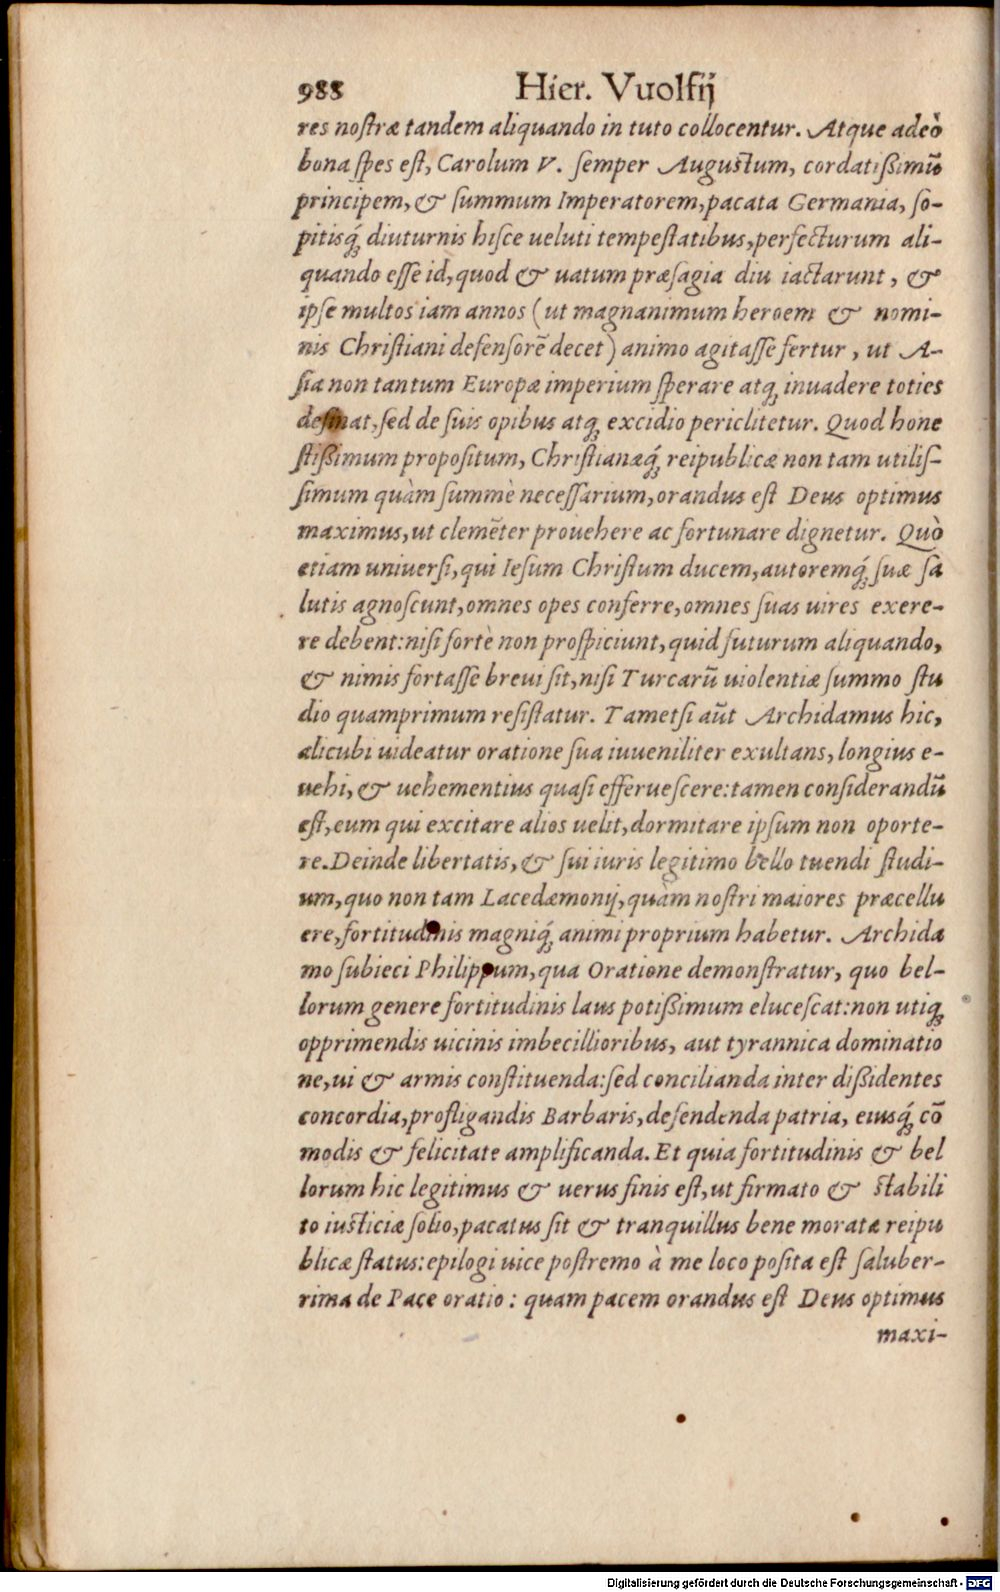 988 Hier. Vuolfij
res nostræ tandem aliquando in tuto collocentur. Atque adeò
bona spes est, Carolum V. semper Augustum, cordatißimũ
principem, & summum Imperatorem, pacata Germania, so-
pitisq́ꝫ diuturnis hisce ueluti tempestatibus, perfecturum ali-
quando esse id, quod & uatum præsagia diu iactarunt, &
ipse multos iam annos (ut magnanimum heroem & nomi-
nis Christiani defensorẽ decet) animo agitasse fertur, ut A-
sia non tantum Europæ imperium sperare atqꝫ inuadere toties
desinat, sed de suis opibus atqꝫ excidio periclitetur. Quod hone
stißimum propositum, Christianæq́ꝫ reipublicæ non tam utilis-
simum quàm summè necessarium, orandus est Deus optimus
maximus, ut clemẽter prouehere ac fortunare dignetur. Quò
etiam uniuersi, qui Iesum Christum ducem, autoremq́ꝫ suæ sa
lutis agnoscunt, omnes opes conferre, omnes suas uires exere-
re debent: nisi fortè non prospiciunt, quid futurum aliquando,
& nimis fortasse breui sit, nisi Turcarũ uiolentiæ summo stu
dio quamprimum resistatur. Tametsi aũt Archidamus hic,
alicubi uideatur oratione sua iuueniliter exultans, longius e-
uehi, & uehementius quasi efferuescere: tamen considerandũ
est, eum qui excitare alios uelit, dormitare ipsum non oporte-
re. Deinde libertatis, & sui iuris legitimo bello tuendi studi-
um, quo non tam Lacedæmonij, quàm nostri maiores præcellu
ere, fortitudinis magniq́ꝫ animi proprium habetur. Archida
mo subieci Philippum, qua Oratione demonstratur, quo bel-
lorum genere fortitudinis laus potißimum elucescat: non utiqꝫ
opprimendis uicinis imbecillioribus, aut tyrannica dominatio
ne, ui & armis constituenda: sed concilianda inter dißidentes
concordia, profligandis Barbaris, defendenda patria, eiusq́ꝫ cõ
modis & felicitate amplificanda. Et quia fortitudinis & bel
lorum hic legitimus & uerus finis est, ut firmato & stabili
to iusticiæ solio, pacatus sit & tranquillus bene moratæ reipu
blicæ status: epilogi uice postremo à me loco posita est saluber-
rima de Pace oratio: quam pacem orandus est Deus optimus
maxi-
Digitalisierung gefördert durch die Deutsche Forschungsgemeinschaft - DFG